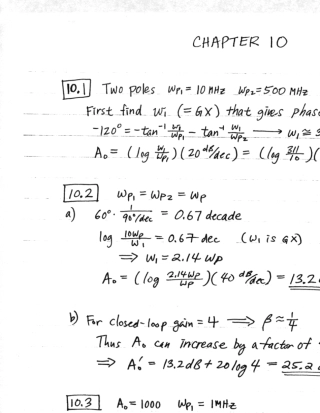 CHAPTER 10
10.1 Two poles ωp1 = 10 MHz ωp2 = 500 MHz
First find ω1 (= GX) that gives phase
-120° = -tan⁻¹ ω1/ωp1 - tan⁻¹ ω1/ωp2 → ω1 ≅ 3
A₀ = (log ω1/ωp1)(20 dB/dec) = (log 311/10)(
10.2 ωp1 = ωp2 = ωp
a) 60° · 1/90°/dec = 0.67 decade
log 10ωp/ω1 = 0.67 dec (ω1 is GX)
⇒ ω1 = 2.14 ωp
A₀ = (log 2.14ωp/ωp)(40 dB/dec) = 13.2
b) For closed-loop gain = 4 ⇒ β ≈ 1/4
Thus A₀ can increase by a factor of
⇒ A₀' = 13.2dB + 20 log 4 = 25.2
10.3 A₀ = 1000 ωp1 = 1MHz